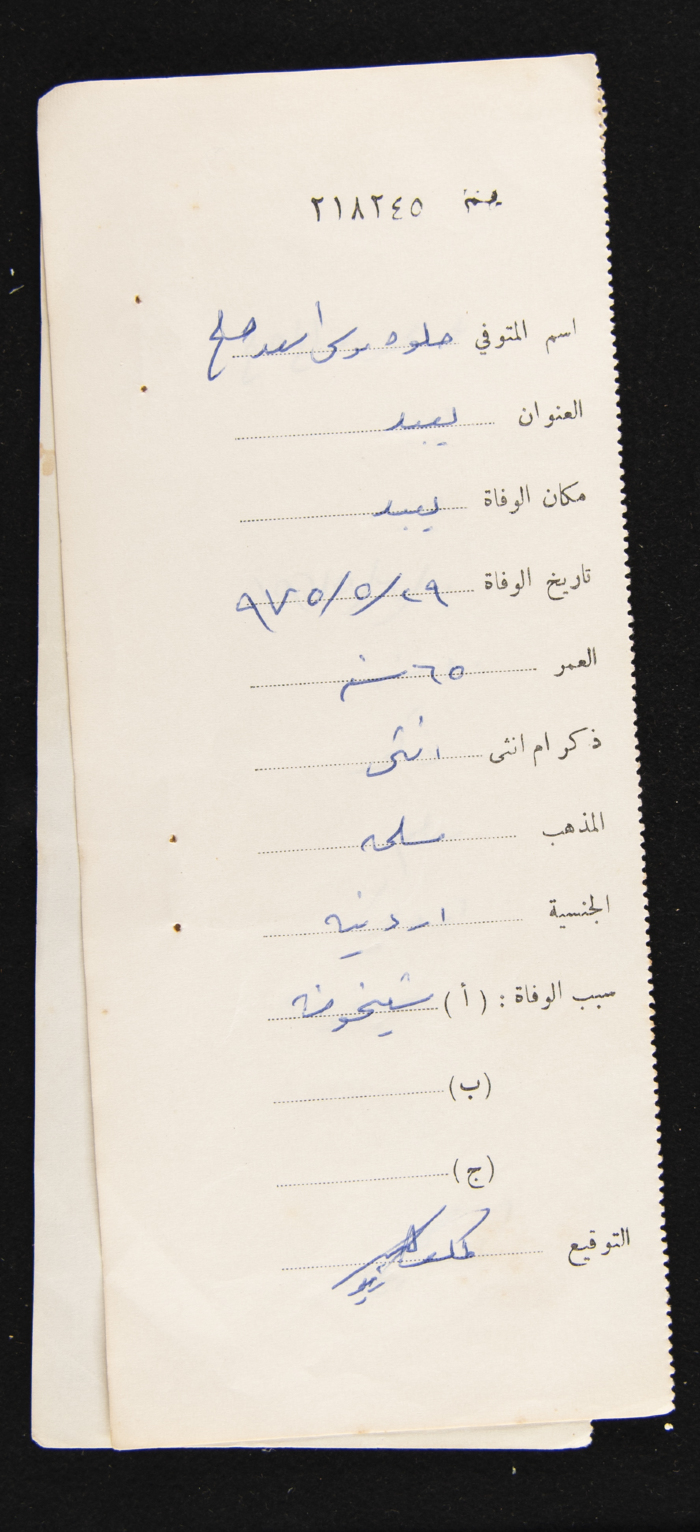 ٢١٨٢٤٥
اسم المتوفي حلوه موسى اسعد صالح
العنوان يعبد
مكان الوفاة يعبد
تاريخ الوفاة ٢٩/٥/٩٧٥
العمر ٦٥ سنه
ذكر ام انثى انثى
المذهب مسلمه
الجنسية اردنيه
سبب الوفاة : (أ) شيخوخه
(ب)
(ج)
التوقيع